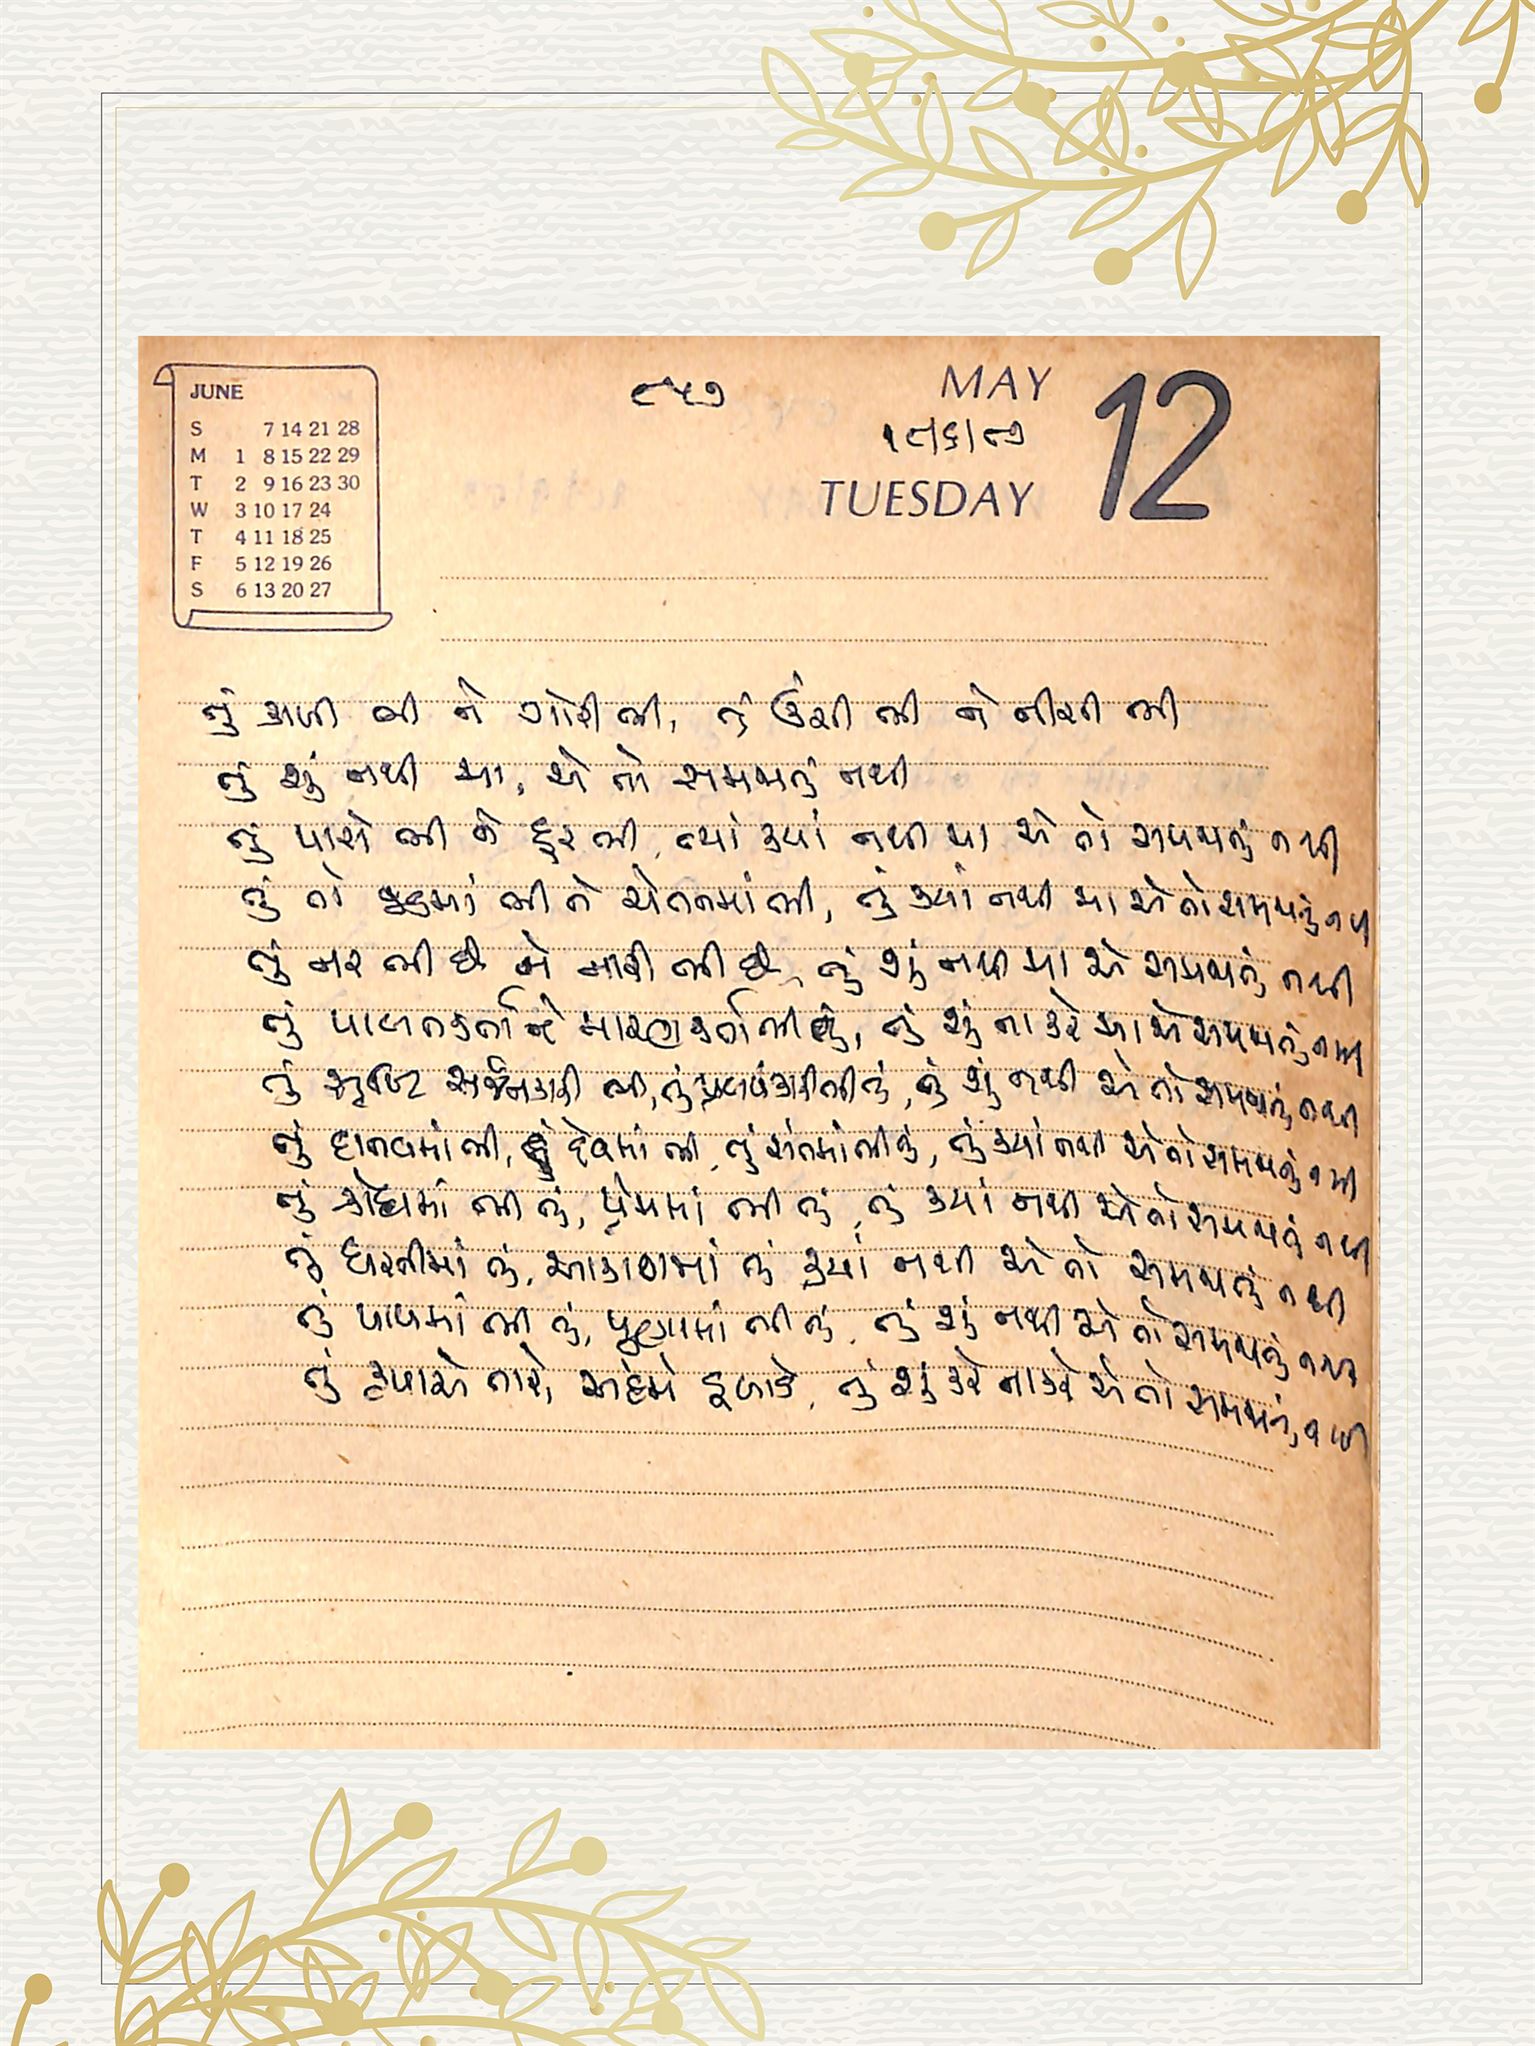 JUNE
S 7 14 21 28
M 1 8 15 22 29
T 2 9 16 23 30
W 3 10 17 24
T 4 11 18 25
F 5 12 19 26
S 6 13 20 27
૯૫૭
MAY
૧૮/૬/૮૭
TUESDAY
12
તું કાળી ભી ને ગોરી ભી, તું ઉંચી ભી ને નીચી ભી
તું શું નથી મા, એ તો સમજાતું નથી
તું પાસે ભી ને દૂર ભી, ત્યાં ક્યાં નથી મા એ તો સમજાતું નથી
તું તો જડમાં ભી ને ચેતનમાં ભી, તું ક્યાં નથી મા એ તો સમજાતું નથી
તું નર ભી છે ને નારી ભી છે, તું શું નથી મા એ સમજાતું નથી
તું પાલનકર્તા ને મારણકર્તા ભી તું, તું શું ના કરે મા એ સમજાતું નથી
તું સૃષ્ટિ સર્જનકારી ભી, તું પ્રલયંકારી ભી તું, તું શું નથી એ તો સમજાતું નથી
તું દાનવમાં ભી, તું દેવમાં ભી, તું સંતમાં ભી તું, તું ક્યાં નથી એ તો સમજાતું નથી
તું ક્રોધમાં ભી તું, પ્રેમમાં ભી તું, તું ક્યાં નથી એ તો સમજાતું નથી
તું ધરતીમાં તું, આકાશમાં તું ક્યાં નથી એ તો સમજાતું નથી
તું પાપમાં ભી તું, પૂણ્યમાં ભી તું, તું શું નથી એ તો સમજાતું નથી
તું કૃપાએ તારે, અહંમે ડૂબાડે, તું શું કરે ના કરે એ તો સમજાતું નથી